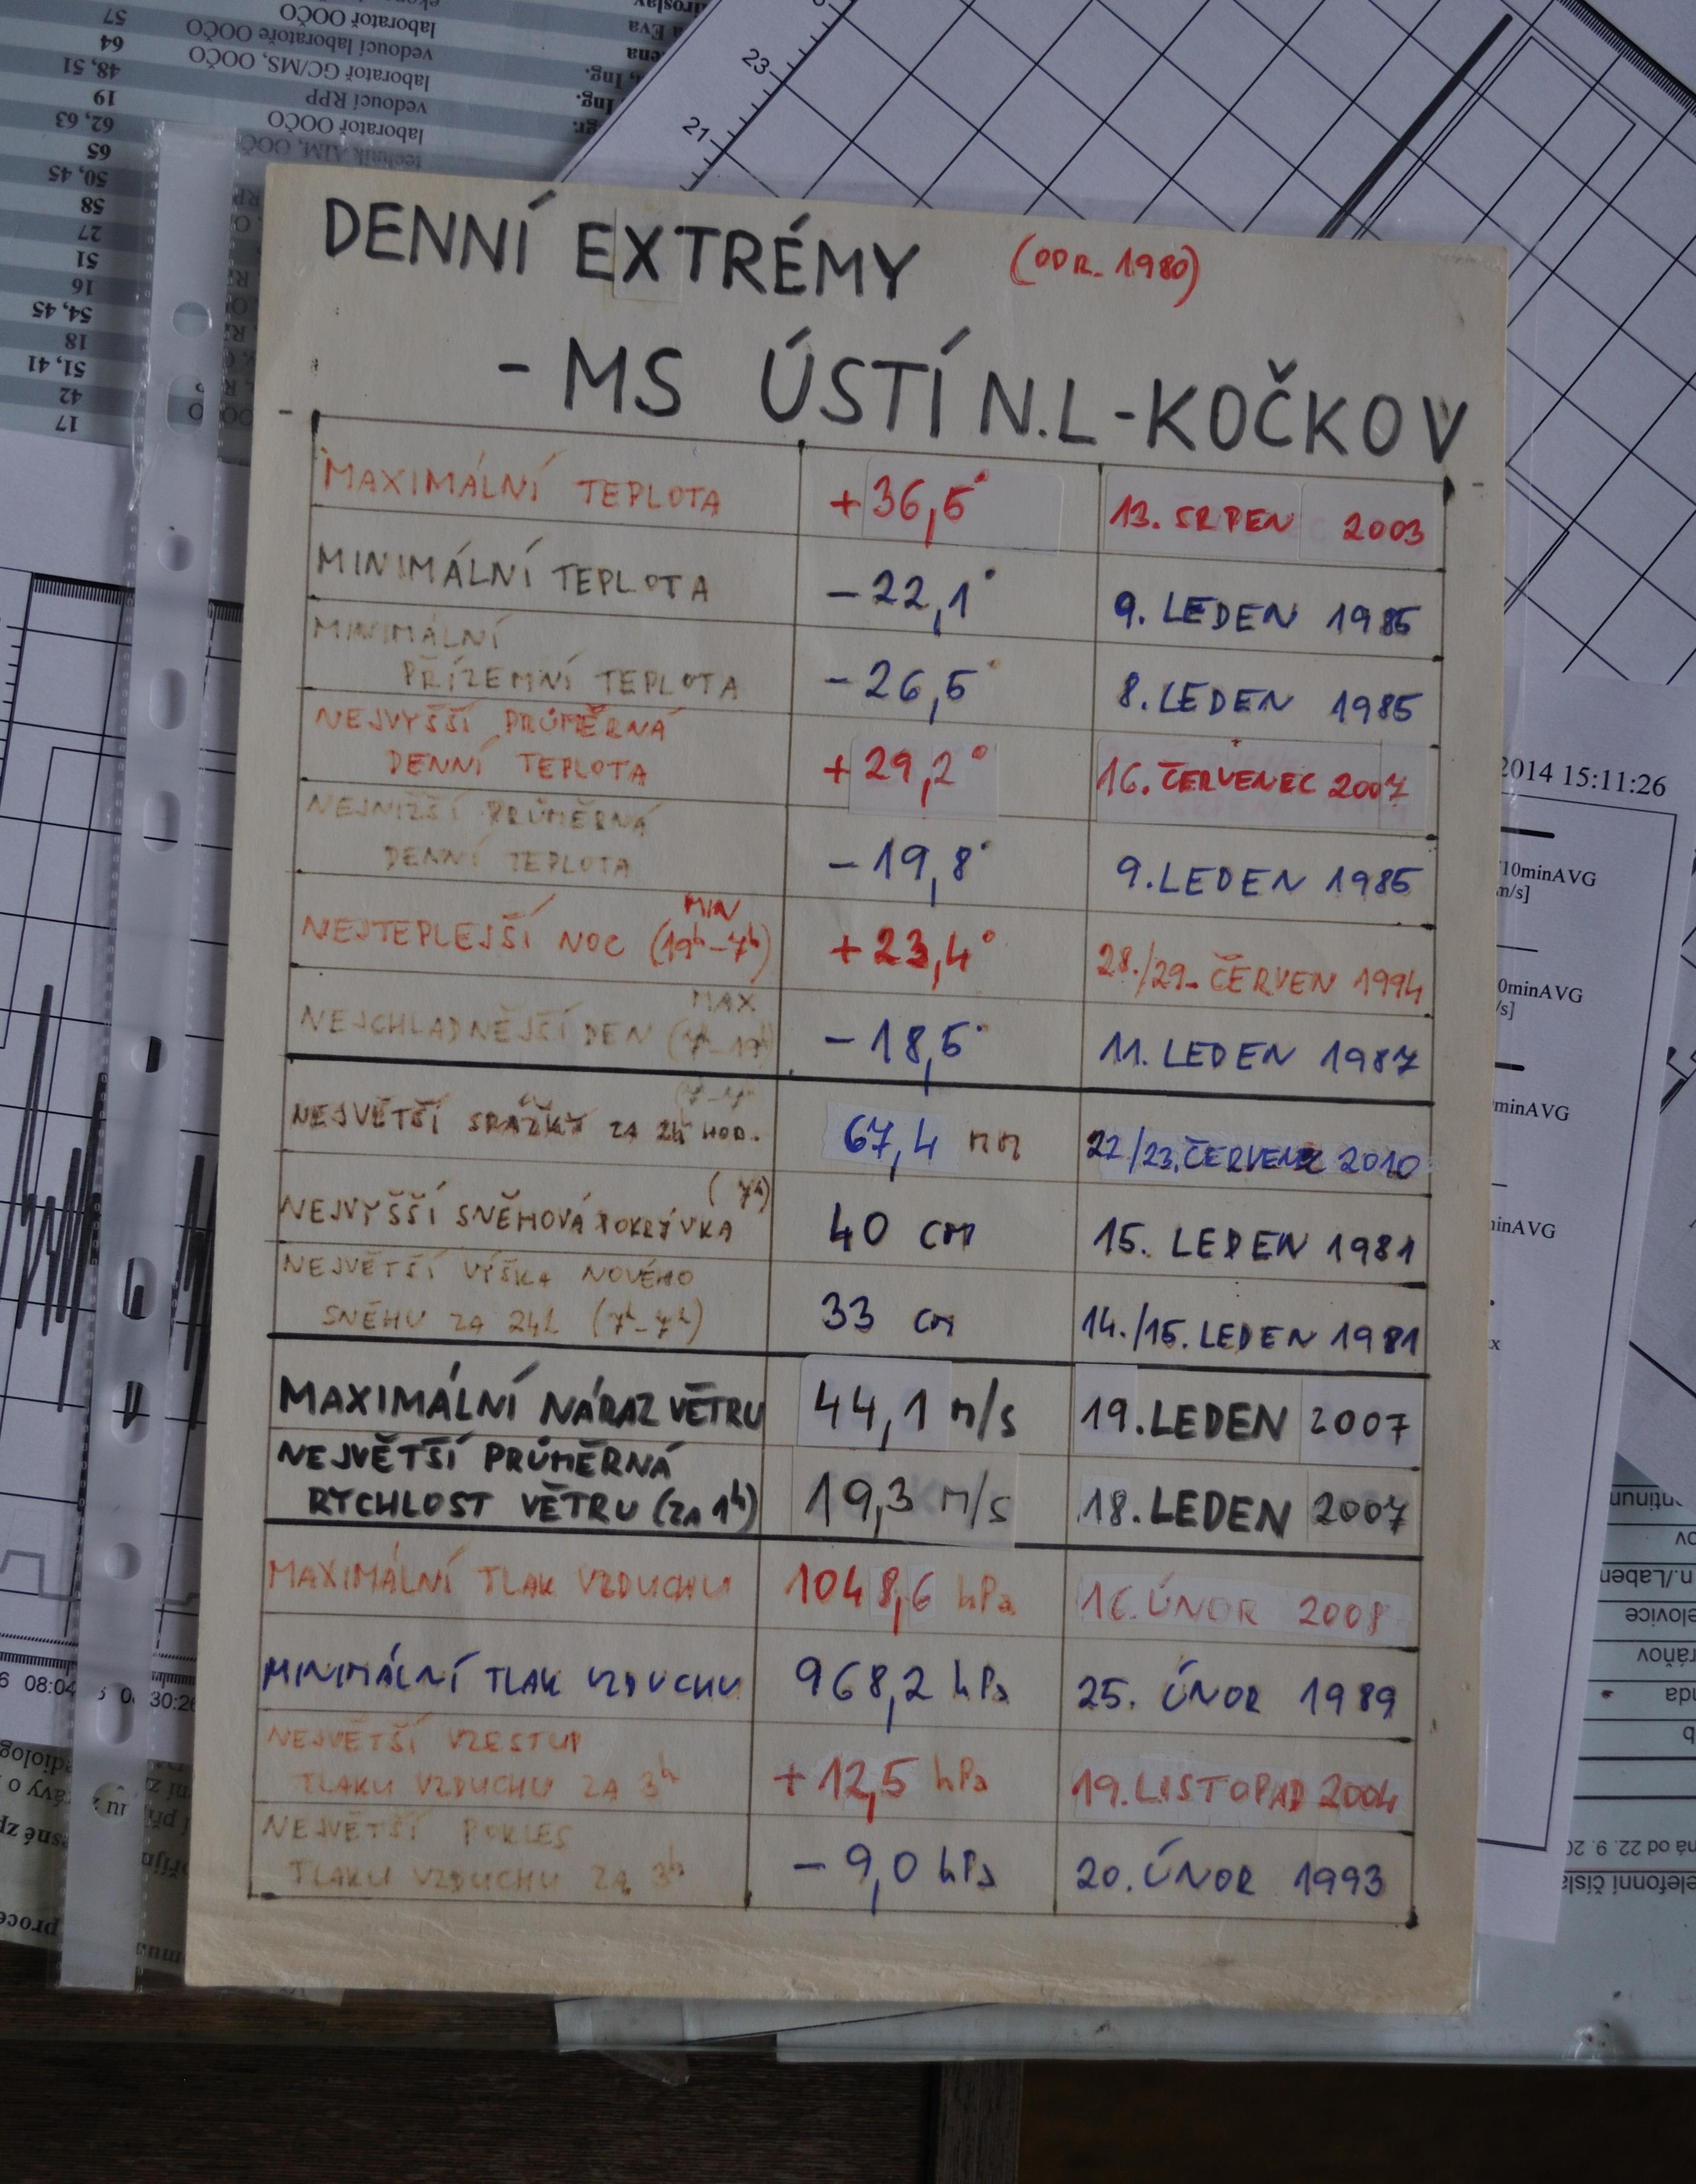 DENNÍ EXTRÉMY (OD R. 1980)
- MS ÚSTÍ N.L - KOČKOV
MAXIMÁLNÍ TEPLOTA +36,5° 13. SRPEN 2003
MINIMÁLNÍ TEPLOTA -22,1° 9. LEDEN 1985
MINIMÁLNÍ
PŘÍZEMNÍ TEPLOTA -26,5° 8. LEDEN 1985
NEJVYŠŠÍ PRŮMĚRNÁ
DENNÍ TEPLOTA +29,2° 16. ČERVENEC 2007
NEJNIŽŠÍ PRŮMĚRNÁ
DENNÍ TEPLOTA -19,8° 9. LEDEN 1985
MIN
NEJTEPLEJŠÍ NOC (19h-7h) +23,4° 28./29. ČERVEN 1994
MAX
NEJCHLADNĚJŠÍ DEN (7h-19h) -18,5° 11. LEDEN 1987
NEJVĚTŠÍ SRÁŽKY ZA 24 HOD. 67,4 mm 22/23. ČERVENEC 2010
(7h)
NEJVYŠŠÍ SNĚHOVÁ POKRÝVKA 40 cm 15. LEDEN 1981
NEJVĚTŠÍ VÝŠKA NOVÉHO
SNĚHU ZA 24h (7h-7h) 33 cm 14./15. LEDEN 1981
MAXIMÁLNÍ NÁRAZ VĚTRU 44,1 m/s 19. LEDEN 2007
NEJVĚTŠÍ PRŮMĚRNÁ
RYCHLOST VĚTRU (ZA 1h) 19,3 m/s 18. LEDEN 2007
MAXIMÁLNÍ TLAK VZDUCHU 1048,6 hPa 16. ÚNOR 2008
MINIMÁLNÍ TLAK VZDUCHU 968,2 hPa 25. ÚNOR 1989
NEJVĚTŠÍ VZESTUP
TLAKU VZDUCHU ZA 3h +12,5 hPa 19. LISTOPAD 2004
NEJVĚTŠÍ POKLES
TLAKU VZDUCHU ZA 3h -9,0 hPa 20. ÚNOR 1993
23
21
2014 15:11:26
10minAVG
m/s]
minAVG
laboratoř OOČO
vedoucí laboratoře OOČO
laboratoř GC/MS, OOČO
vedoucí RPP
laboratoř OOČO
57
64
48, 51
19
62, 63
65
50, 45
58
27
51
16
54, 45
18
51, 41
42
17